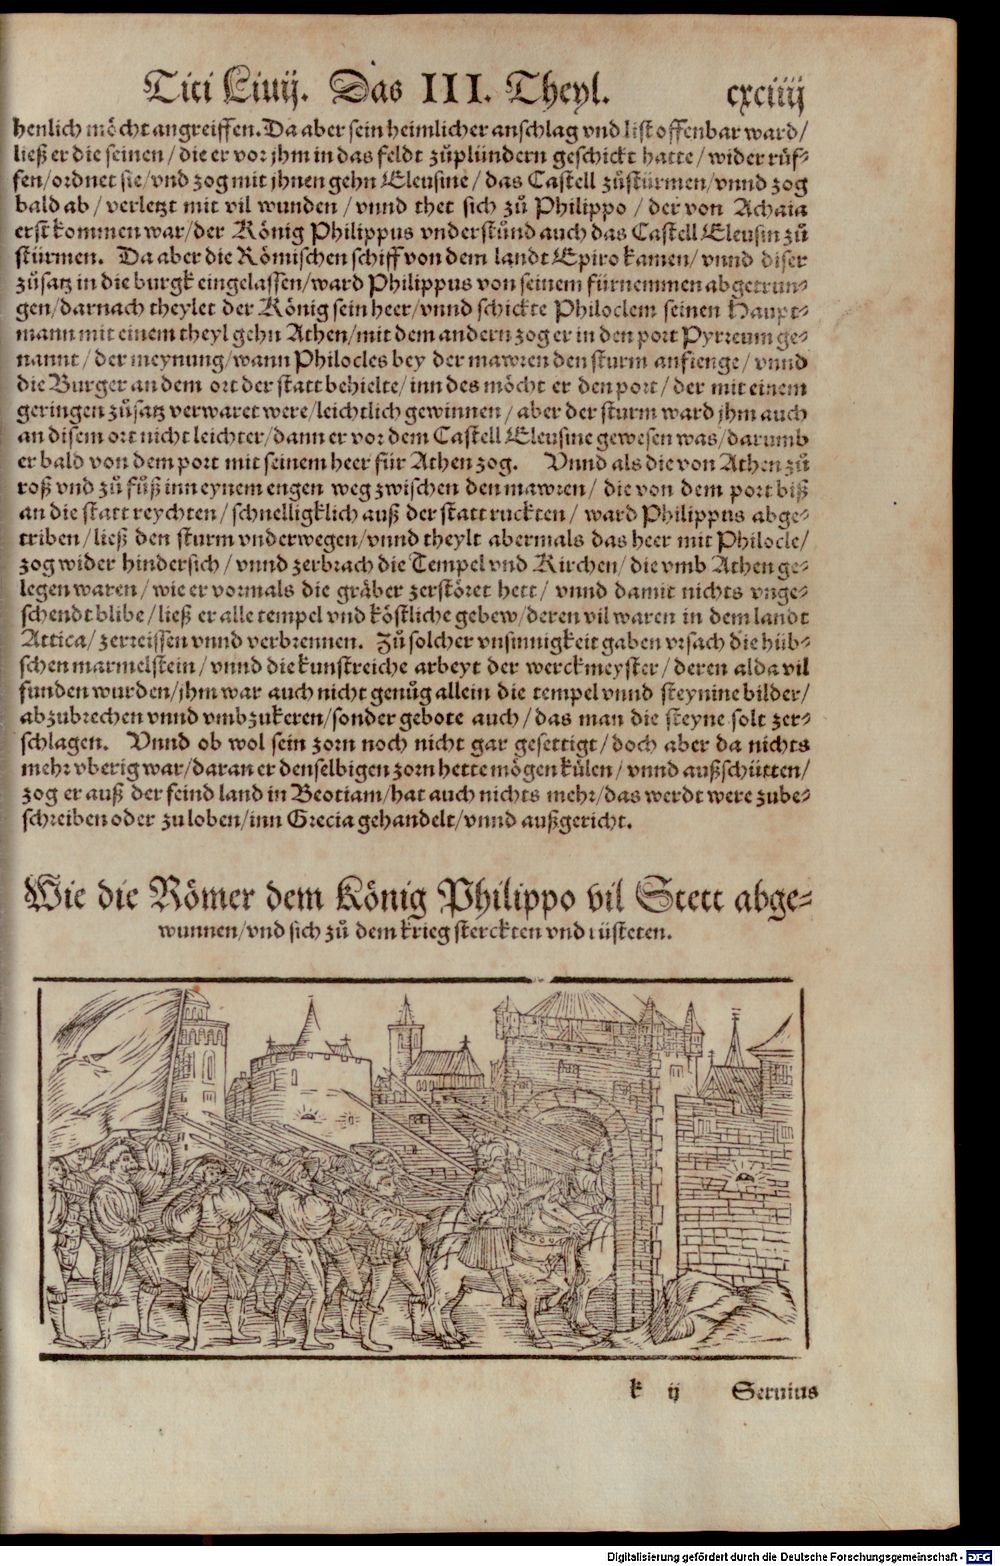 Titi Liuij. Das III. Theyl. cxciiij
henlich möcht angreiffen. Da aber sein heimlicher anschlag vnd list offenbar ward/
ließ er die seinen/die er vor jhm in das feldt zůplündern geschickt hatte/wider růf⸗
fen/ordnet sie/vnd zog mit jhnen gehn Eleusine/das Castell zůstürmen/vnnd zog
bald ab/verletzt mit vil wunden/vnnd thet sich zů Philippo/der von Achaia
erst kommen war/der König Philippus vnderstůnd auch das Castell Eleusin zů
stürmen. Da aber die Römischen schiff von dem landt Epiro kamen/vnnd diser
zůsatz in die burgk eingelassen/ward Philippus von seinem fürnemmen abgetrun⸗
gen/darnach theylet der König sein heer/vnnd schickte Philoclem seinen Haupt⸗
mann mit einem theyl gehn Athen/mit dem andern zog er in den port Pyrreum ge⸗
nannt/der meynung/wann Philocles bey der mawren den sturm anfienge/vnnd
die Burger an dem ort der statt behielte/inn des möcht er den port/der mit einem
geringen zůsatz verwaret were/leichtlich gewinnen/aber der sturm ward jhm auch
an disem ort nicht leichter/dann er vor dem Castell Eleusine gewesen was/darumb
er bald von dem port mit seinem heer für Athen zog. Vnnd als die von Athen zů
roß vnd zů fůß inn eynem engen weg zwischen den mawren/die von dem port biß
an die statt reychten/schnelligklich auß der statt ruckten/ward Philippus abge⸗
triben/ließ den sturm vnderwegen/vnnd theylt abermals das heer mit Philocle/
zog wider hindersich/vnnd zerbrach die Tempel vnd Kirchen/die vmb Athen ge⸗
legen waren/wie er vormals die gräber zerstöret hett/vnnd damit nichts vnge⸗
schendt blibe/ließ er alle tempel vnd köstliche gebew/deren vil waren in dem landt
Attica/zerreissen vnnd verbrennen. Zů solcher vnsinnigkeit gaben vrsach die hüb⸗
schen marmelstein/vnnd die kunstreiche arbeyt der werckmeyster/deren alda vil
funden wurden/jhm war auch nicht genůg allein die tempel vnnd steynine bilder/
abzubrechen vnnd vmbzukeren/sonder gebote auch/das man die steyne solt zer⸗
schlagen. Vnnd ob wol sein zorn noch nicht gar gesettigt/doch aber da nichts
mehr vberig war/daran er denselbigen zorn hette mögen külen/vnnd außschütten/
zog er auß der feind land in Beotiam/hat auch nichts mehr/das werdt were zube⸗
schreiben oder zu loben/inn Grecia gehandelt/vnnd außgericht.
Wie die Römer dem König Philippo vil Stett abge⸗
wunnen/vnd sich zů dem krieg sterckten vnd rüsteten.
k ij Seruius
Digitalisierung gefördert durch die Deutsche Forschungsgemeinschaft - DFG